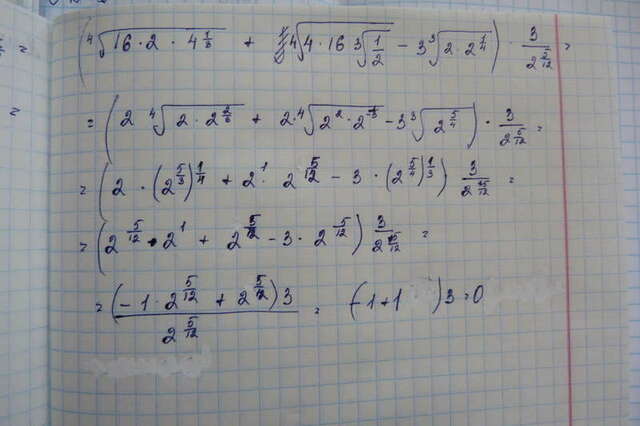 ( ⁴√(16·2 · 4^(1/3)) + ⁴√(4·16 ³√(1/2)) - 3 ³√(2·2^(1/4)) ) · 3/2^(5/12) =
= ( 2 ⁴√(2·2^(2/6)) + 2·⁴√(2²·2^(-1/3)) - 3 ³√(2^(5/4)) ) · 3/2^(5/12) =
= ( 2 · (2^(5/3))^(1/4) + 2^1 · 2^(5/12) - 3 · (2^(5/4))^(1/3) ) 3/2^(5/12) =
= ( 2^(5/12) · 2^1 + 2^(5/12) - 3 · 2^(5/12) ) 3/2^(5/12) =
= (-1 · 2^(5/12) + 2^(5/12)) 3 / 2^(5/12) = (-1+1) 3 = 0